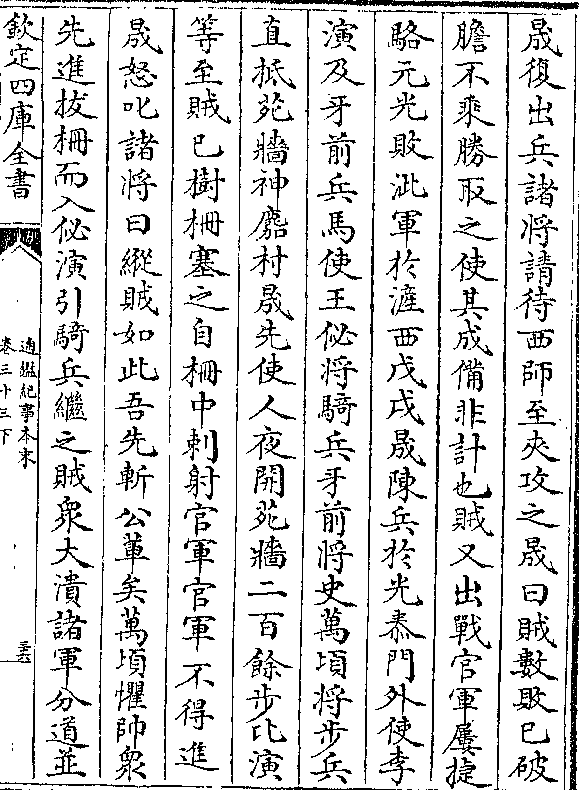 晟復出兵諸將請待西師至夾攻之晟曰賊數敗已破
膽不乗勝取之使其成備非計也賊又出戰官軍屢捷
駱元光敗泚軍於滻西戊戌晟陳兵於光泰門外使李
演及牙前兵馬使王佖將騎兵牙前將史萬頃將步兵
直抵苑牆神麚村晟先使人夜開苑牆二百餘步比演
等至賊已樹柵塞之自柵中刺射官軍官軍不得進
晟怒叱諸將曰縱賊如此吾先斬公軰矣萬頃懼帥衆
先進拔柵而入佖演引騎兵繼之賊衆大潰諸軍分道並
欽定四庫全書
通鑑紀事本末
卷三十三下